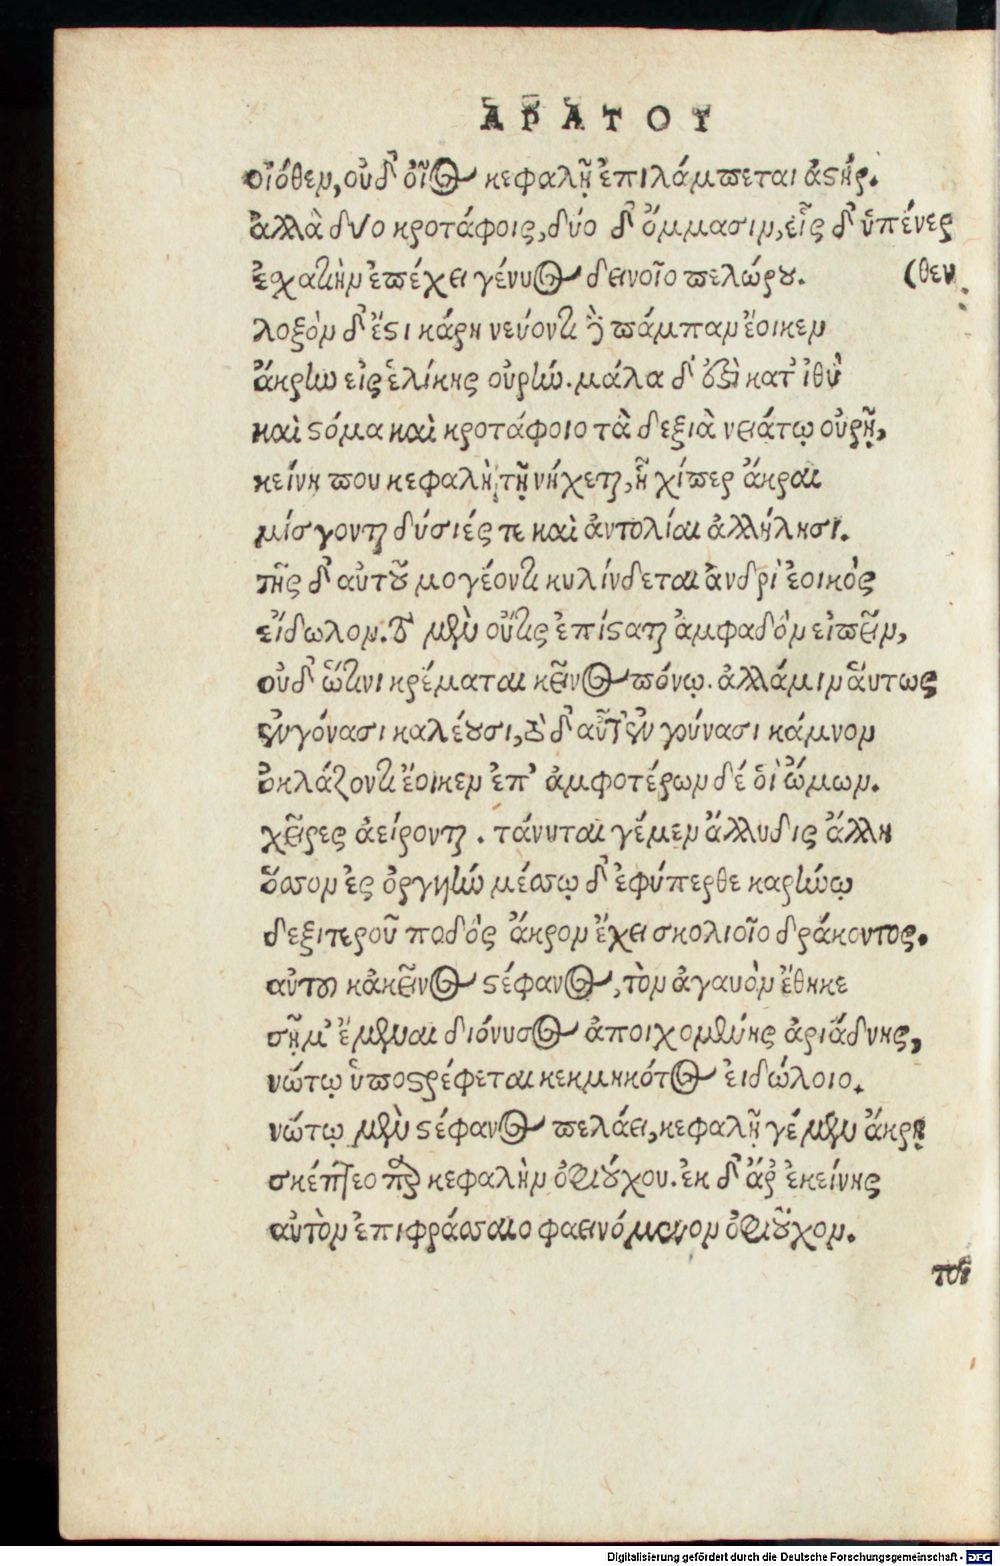 ΑΡΑΤΟΥ
οἰόθεν, οὐδ' οἶος κεφαλῇ ἐπιλάμπεται ἀστήρ.
ἀλλὰ δύο κροτάφοις, δύο δ' ὄμμασιν, εἷς δ' ὑπένερ
ἐσχατιὴν ἐπέχει γένυος δεινοῖο πελώρου. (θεν
λοξὸν δ' ἔστι κάρη νεύοντι δὲ πάμπαν ἔοικεν
ἄκρην εἰς ἑλίκης οὐρήν. μάλα δ' ἐστὶ κατ' ἰθὺ
καὶ στόμα καὶ κροτάφοιο τὰ δεξιὰ νειάτῳ οὐρῇ,
κείνη που κεφαλὴ τῇ νήχεται, ἧχίπερ ἄκραι
μίσγονται δύσιές τε καὶ ἀντολίαι ἀλλήλησι.
τῆς δ' αὐτοῦ μογέοντι κυλίνδεται ἀνδρὶ ἐοικὸς
εἴδωλον. τὸ μὲν οὔτις ἐπίσταται ἀμφαδὸν εἰπεῖν,
οὐδ' ὥτινι κρέμαται κεῖνος πόνῳ. ἀλλάμιν αὕτως
ἐνγόνασι καλέουσι, τὸ δ' αὖτ' ἐν γούνασι κάμνον
ὀκλάζοντι ἔοικεν ἐπ' ἀμφοτέρων δέ οἱ ὤμων.
χεῖρες ἀείρονται . τάνυται γέμεν ἄλλυδις ἄλλη
ὅσσον ἐς ὀργυιὴν μέσσῳ δ' ἐφύπερθε καρήνῳ
δεξιτεροῦ ποδὸς ἄκρον ἔχει σκολιοῖο δράκοντος.
αὐτοῦ κἀκεῖνος στέφανος, τὸν ἀγαυὸν ἔθηκε
σῆμ' ἔμεναι διόνυσος ἀποιχομένης ἀριάδνης,
νώτῳ ὑποστρέφεται κεκμηκότος εἰδώλοιο.
νώτῳ μὲν στέφανος πελάει, κεφαλῇ γέ μεν ἄκρῃ
σκέπτεο πὰρ κεφαλὴν ὀφιούχου. ἐκ δ' ἄρ' ἐκείνης
αὐτὸν ἐπιφράσσαιο φαεινόμενον ὀφιοῦχον.
τοῖ
Digitalisierung gefördert durch die Deutsche Forschungsgemeinschaft - DFG